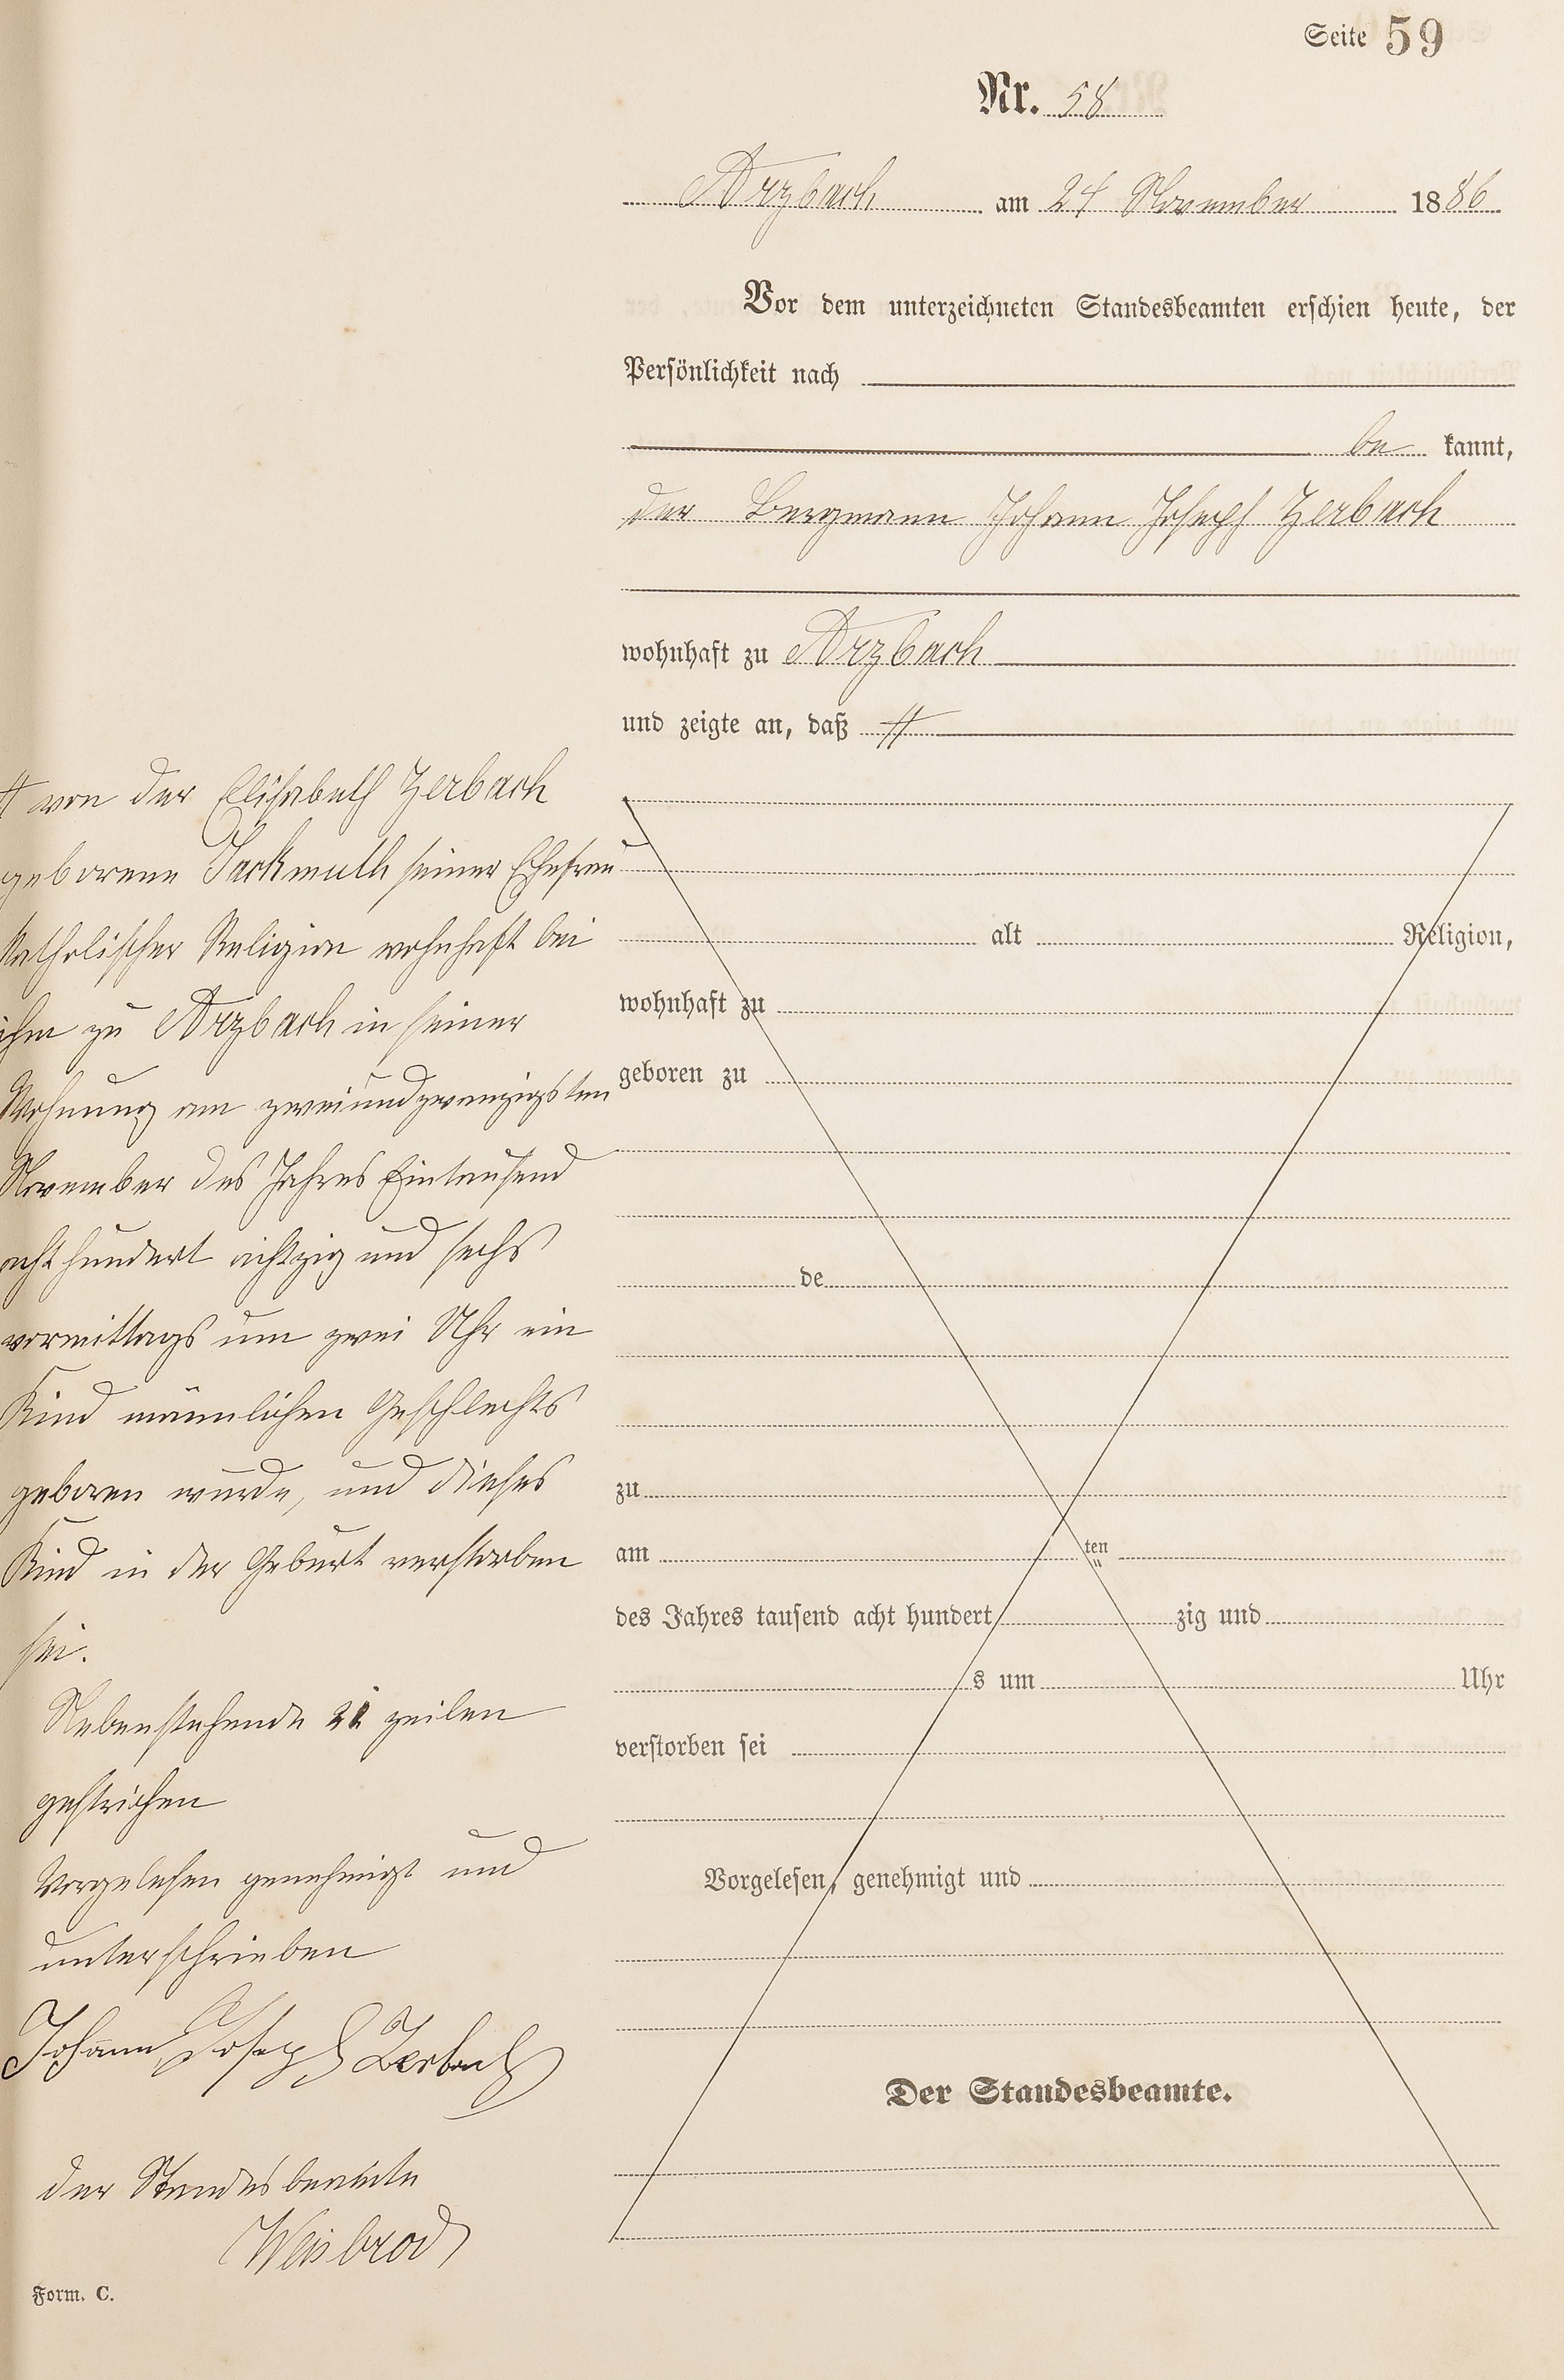 Seite 59
Nr. 58
Arzbach am 24 November 1886
Vor dem unterzeichneten Standesbeamten erschien heute, der
Persönlichkeit nach
be kannt,
der Bergmann Johann Joseph Zerbach
wohnhaft zu Arzbach
und zeigte an, daß #
alt Religion,
wohnhaft zu
geboren zu
de
zu
am ten
des Jahres tausend acht hundert zig und
s um Uhr
verstorben sei
Vorgelesen, genehmigt und
Der Standesbeamte.
# von der Elisabeth Zerbach
geborene Jackmuth seiner Ehefrau
katholischer Religion wohnhaft bei
ihm zu Arzbach in seiner
Wohnung am zweiundzwanzigsten
November des Jahres Eintausend
achthundert achtzig und sechs
vormittags um zwei Uhr ein
Kind männlichen Geschlechts
geboren wurde, und dieses
Kind in der Geburt verstorben
sei.
Nebenstehende zeilen
gestrichen
Vorgelesen genehmigt und
unterschrieben
Johann Joseph Zerbach
der Standesbeamte
Weisbrod
Form. C.